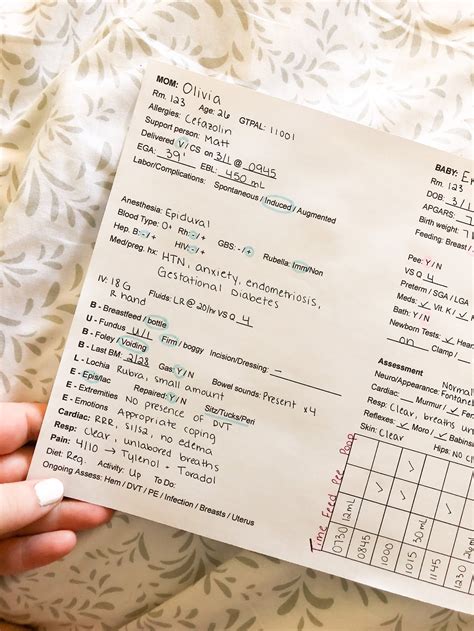 MOM: Olivia
Rm. 123 Age: 26 GTPAL: 11001
Allergies: Cefazolin
Support person: Matt
Delivered V / CS on 3/1 @ 0945
EGA: 39' EBL: 450 mL
Labor/Complications: Spontaneous / Induced / Augmented
Anesthesia: Epidural
Blood Type: O+ Rh: - / +
Hep. B: - / + HIV: - / + GBS: - / + Rubella: Imm/Non
Med/preg. hx: HTN, anxiety, endometriosis,
Gestational Diabetes
IV: 18 G Fluids: LR @ 20/hr VS Q 4
R hand
B - Breastfeed / bottle
U - Fundus U/1 Firm / boggy Incision/Dressing: –
B - Foley / Voiding
B - Last BM: 2/28 Gas: Y / N Bowel sounds: Present x4
L - Lochia Rubra, small amount
E - Epis/lac Repaired: Y / N Sitz/Tucks/Peri
E - Extremities No presence of DVT
E - Emotions Appropriate coping
Cardiac: RRR, S1/S2, no edema
Resp: Clear, unlabored breaths
Pain: 4/10 → Tylenol + Toradol
Diet: Reg. Activity: Up To Do:
Ongoing Assess: Hem / DVT / PE / Infection / Breasts / Uterus
BABY:
Rm. 123
DOB: 3/1
APGARS:
Birth weight: 7
Feeding: Breast /
Pee: Y / N
VS Q 4
Preterm / SGA / LGA
Meds: ✓ Vit. K /
Bath: Y / N
Newborn Tests: ✓ Hear
on Clamp /
Assessment
Neuro/Appearance:
Cardiac: Murmur /
Resp: Clear, breaths
Reflexes: ✓ Moro /
Skin: Clear Hips: NO
Time Feed Pee Poop
0730 12mL
0845 ✓
1000 ✓
1015 30mL
1145 ✓
1230